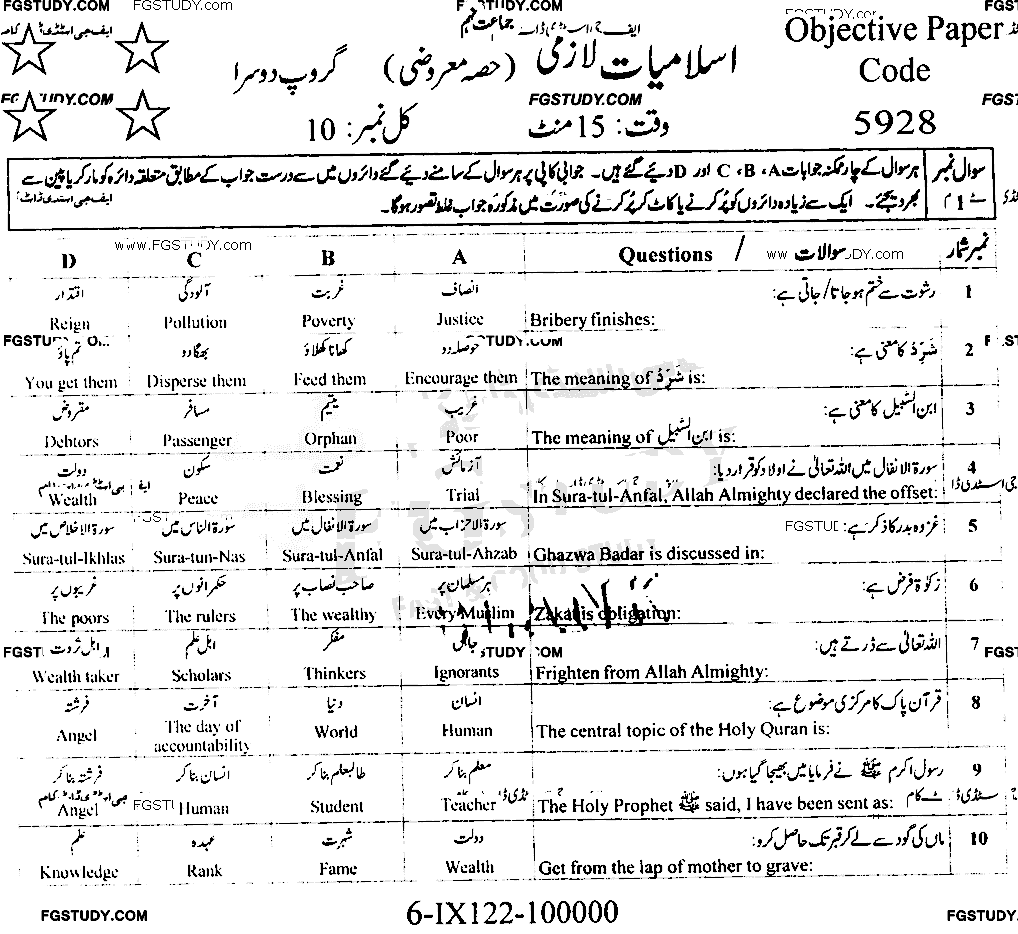 FGSTUDY.COM FGSTUDY.COM
ایف جی اسٹڈی ڈاٹ کام
جماعت نہم
Objective Paper
Code
5928
اسلامیات لازمی (حصہ معروضی) گروپ دوسرا
FGSTUDY.COM
وقت: 15 منٹ کل نمبر: 10
سوال نمبر 1 ہر سوال کے چار ممکنہ جوابات A، B، C اور D دیئے گئے ہیں۔ جوابی کاپی پر ہر سوال کے سامنے دیئے گئے دائروں میں سے درست جواب کے مطابق متعلقہ دائرہ کو مارکر یا پین سے
بھر دیجئے۔ ایک سے زیادہ دائروں کو پُر کرنے یا کاٹ کر پُر کرنے کی صورت میں مذکورہ جواب غلط تصور ہو گا۔
www.FGSTUDY.com
D C B A Questions / سوالات نمبر شمار
اقتدار آلودگی غربت انصاف رشوت سے ختم ہو جاتا/جاتی ہے: 1
Reign Pollution Poverty Justice Bribery finishes:
تم پاؤ بھگا دو کھانا کھلاؤ حوصلہ دو شَرِّدْ کا معنی ہے: 2
You get them Disperse them Feed them Encourage them The meaning of شَرِّدْ is:
مقروض مسافر یتیم غریب ابن السّبیل کا معنی ہے: 3
Debtors Passenger Orphan Poor The meaning of ابن السّبیل is:
دولت سکون نعمت آزمائش سورۃ الانفال میں اللہ تعالیٰ نے اولاد کو قرار دیا: 4
Wealth Peace Blessing Trial In Sura-tul-Anfal, Allah Almighty declared the offset:
سورۃ الاخلاص میں سورۃ الناس میں سورۃ الانفال میں سورۃ الاحزاب میں غزوہ بدر کا ذکر ہے: 5
Sura-tul-Ikhlas Sura-tun-Nas Sura-tul-Anfal Sura-tul-Ahzab Ghazwa Badar is discussed in:
غریبوں پر حکمرانوں پر صاحب نصاب پر ہر مسلمان پر زکوٰۃ فرض ہے: 6
The poors The rulers The wealthy Every Muslim Zakat is obligation:
اہل ثروت اہل علم مفکر جاہل اللہ تعالیٰ سے ڈرتے ہیں: 7
Wealth taker Scholars Thinkers Ignorants Frighten from Allah Almighty:
فرشتہ آخرت دنیا انسان قرآن پاک کا مرکزی موضوع ہے: 8
Angel The day of accountability World Human The central topic of the Holy Quran is:
فرشتہ بنا کر انسان بنا کر طالبعلم بنا کر معلم بنا کر رسول اکرم ﷺ نے فرمایا میں بھیجا گیا ہوں: 9
Angel Human Student Teacher The Holy Prophet ﷺ said, I have been sent as:
علم عہدہ شہرت دولت ماں کی گود سے لے کر قبر تک حاصل کرو: 10
Knowledge Rank Fame Wealth Get from the lap of mother to grave:
FGSTUDY.COM 6-IX122-100000 FGSTUDY.COM